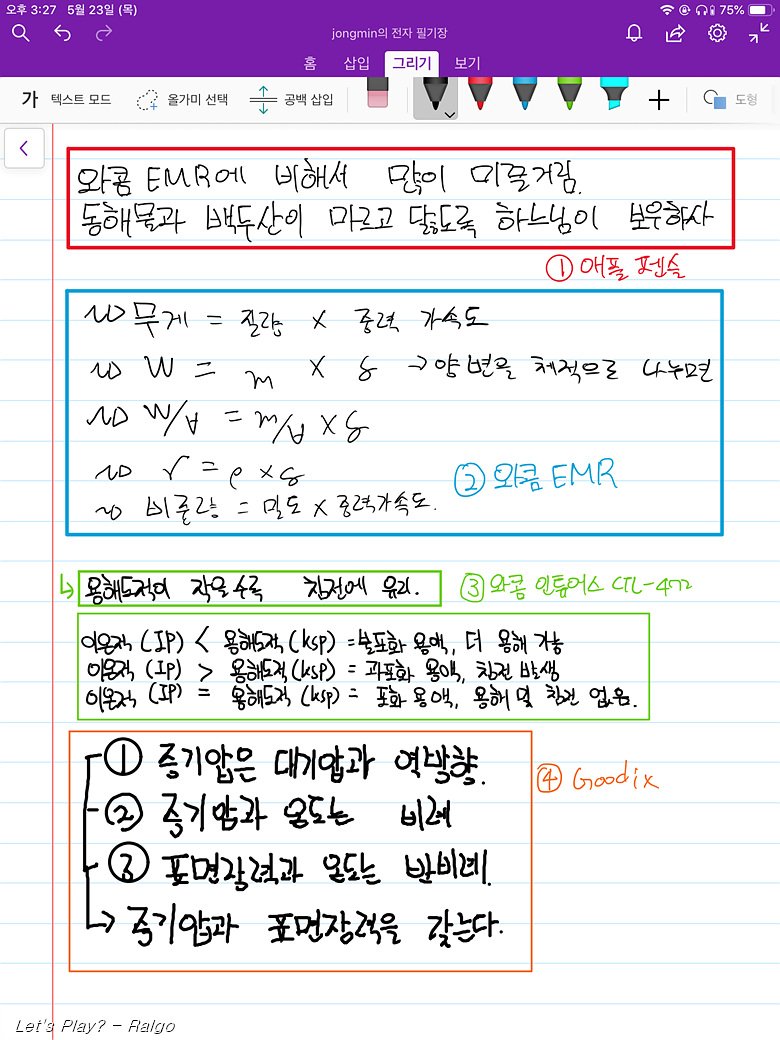 오후 3:27 5월 23일 (목) 75%
jongmin의 전자 필기장
홈 삽입 그리기 보기
가 텍스트 모드 올가미 선택 공백 삽입 도형
와콤 EMR에 비해서 많이 미끌거림.
동해물과 백두산이 마르고 닳도록 하느님이 보우하사
① 애플 펜슬
무게 = 질량 × 중력 가속도
W = m × g → 양변을 체적으로 나누면
W/V = m/V × g
γ = ρ × g
② 와콤 EMR
비중량 = 밀도 × 중력가속도.
용해도적이 작을수록 침전에 유리.
③ 와콤 인튜어스 CTL-472
이온적 (IP) < 용해도적 (ksp) = 불포화 용액, 더 용해 가능
이온적 (IP) > 용해도적 (ksp) = 과포화 용액, 침전 발생
이온적 (IP) = 용해도적 (ksp) = 포화 용액, 용해 및 침전 없음.
① 증기압은 대기압과 역방향.
④ Goodix
② 증기압과 온도는 비례
③ 표면장력과 온도는 반비례.
→ 증기압과 표면장력을 갖는다.
Let's Play? - Ralgo